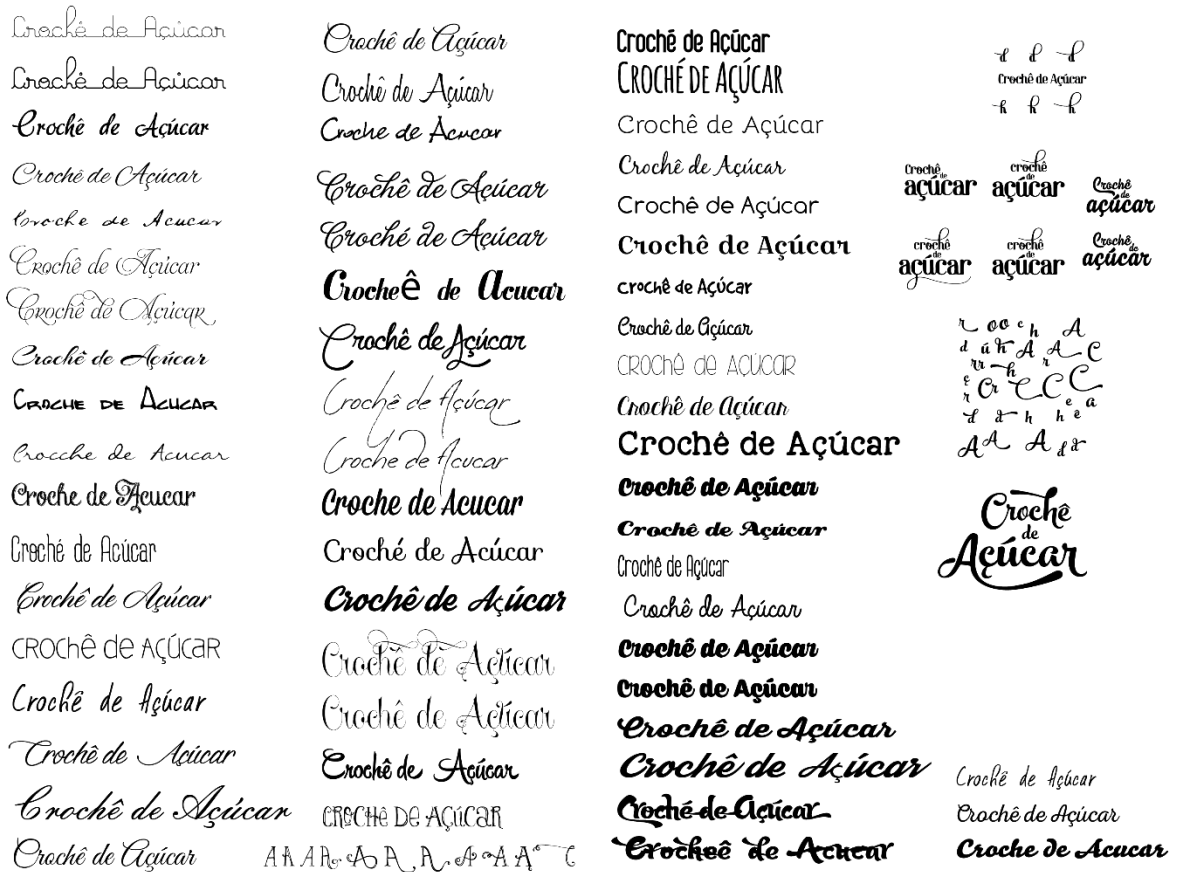 Crochê de Açúcar
Crochê de Açúcar
Croché de Açúcar
Crochê de Açúcar
Croche de Acucar
Crochê de Açúcar
Crochê de Açúcar
Crochê de Açúcar
Croche de Acucar
Crocche de Acucar
Croche de Acucar
Croché de Açúcar
Croché de Açúcar
crochê de Açúcar
Crochê de Açúcar
Crochê de Açúcar
Crochê de Açúcar
Crochê de Açúcar
Crochê de Açúcar
Crochê de Açúcar
Croche de Acucar
Crochê de Açúcar
Croché de Açúcar
Crocheê de Acucar
Crochê de Açúcar
Crochê de Açúcar
Croche de Acucar
Croche de Acucar
Croché de Acúcar
Crochê de Açúcar
Crochê de Açúcar
Crochê de Açúcar
Crochê de Açúcar
CROCHÊ DE AÇÚCAR
A A A A A A A A A A C
Croché de Açúcar
CROCHÉ DE AÇÚCAR
Crochê de Açúcar
Crochê de Açúcar
Crochê de Açúcar
Crochê de Açúcar
crochê de Açúcar
Crochê de Açúcar
CROCHÊ DE AÇÚCAR
Crochê de Açúcar
Crochê de Açúcar
Crochê de Açúcar
Crochê de Açúcar
Crochê de Açúcar
Crochê de Açúcar
Crochê de Açúcar
Crochê de Açúcar
Crochê de Açúcar
Crochê de Açúcar
Croché de Açúcar
Crocheê de Acucar
d d d
Crochê de Açúcar
h h h
Crochê de açúcar
crochê de açúcar
Crochê de açúcar
crochê de açúcar
crochê de açúcar
Crochê de açúcar
r oo c h A
d ú h A A C
rr h r
e Cr C C C
r e a
d a h h ê
A A A d a
Crochê
de
Açúcar
Crochê de Açúcar
Crochê de Açúcar
Croche de Acucar